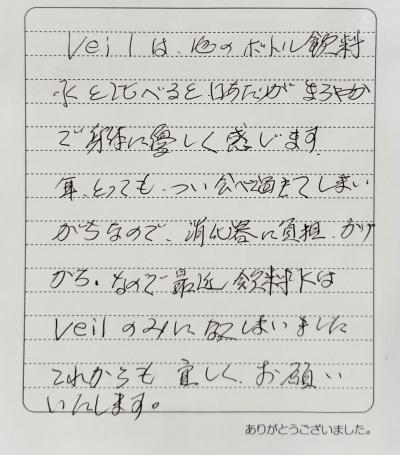 Veilは、他のボトル飲料
水と比べると口あたりがまろやか
で身体に優しく感じます。
年、とっても、つい食べ過ぎてしまい
がちなので、消化器に負担、かけ
がち。なので最近 飲料水は
Veilのみに なってしまいました
これからも宜しく、お願い
いたします。
ありがとうございました。